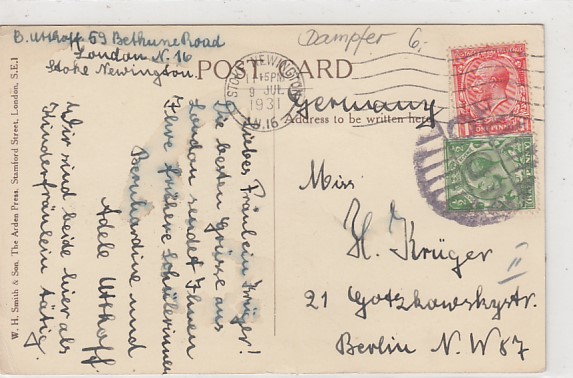 B. Utthoff 59 Bethune Road
London N. 16
Stoke Newington.
Dampfer 6.-
POST CARD
STOKE NEWINGTON
15PM
9 JUL
1931
N.16
Germany
Address to be written here
Liebes Fräulein Krüger!
Die besten Grüsse aus
London sendet Ihnen
Ihre frühere Schülerinnen
Bernhardine und
Adele Utthoff
Wir sind beide hier als
Kinderfräulein tätig.
Miss
H. Krüger
II
21 Gotzkowskystr.
Berlin N. W 87
W. H. Smith & Son, The Arden Press, Stamford Street, London, S.E.1